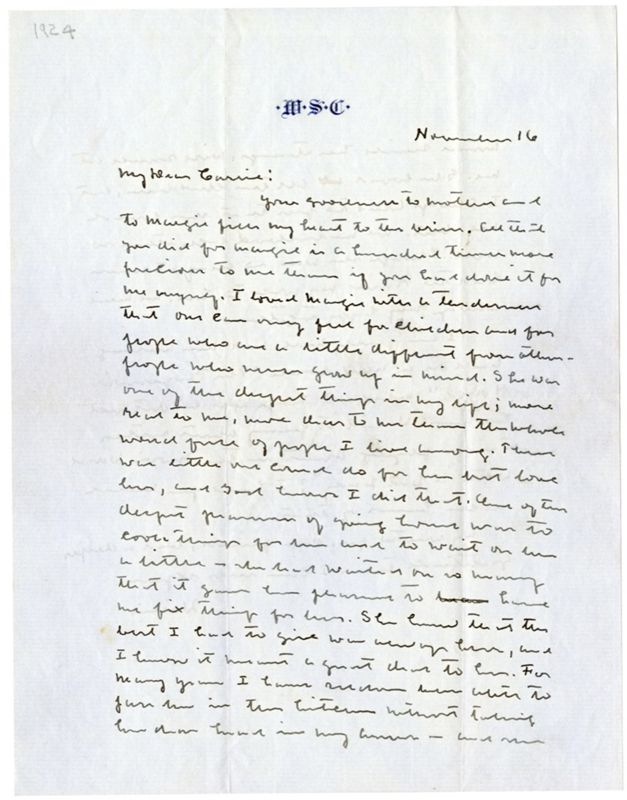 1924
·W·S·C·
November 16
My Dear Carrie:
Your goodness to mother and
to Margie fills my heart to the brim. All that
you did for Margie is a hundred times more
precious to me than if you had done it for
me myself. I loved Margie with a tenderness
that one can only feel for children and for
people who are a little different from others—
people who never grow up in mind. She was
one of the deepest things in my life; more
real to me, more dear to me than the whole
world full of people I live among. There
was little one could do for her but love
her, and God knows I did that. One of the
deepest pleasures of going home was to
cook things for her and to wait on her
a little — she had waited on so many
that it gave her pleasure to have
me fix things for her. She knew that the
best I had to give was always hers, and
I know it meant a great deal to her. For
many years I have seldom been able to
pass her in the kitchen without taking
her dear head in my arms — and she